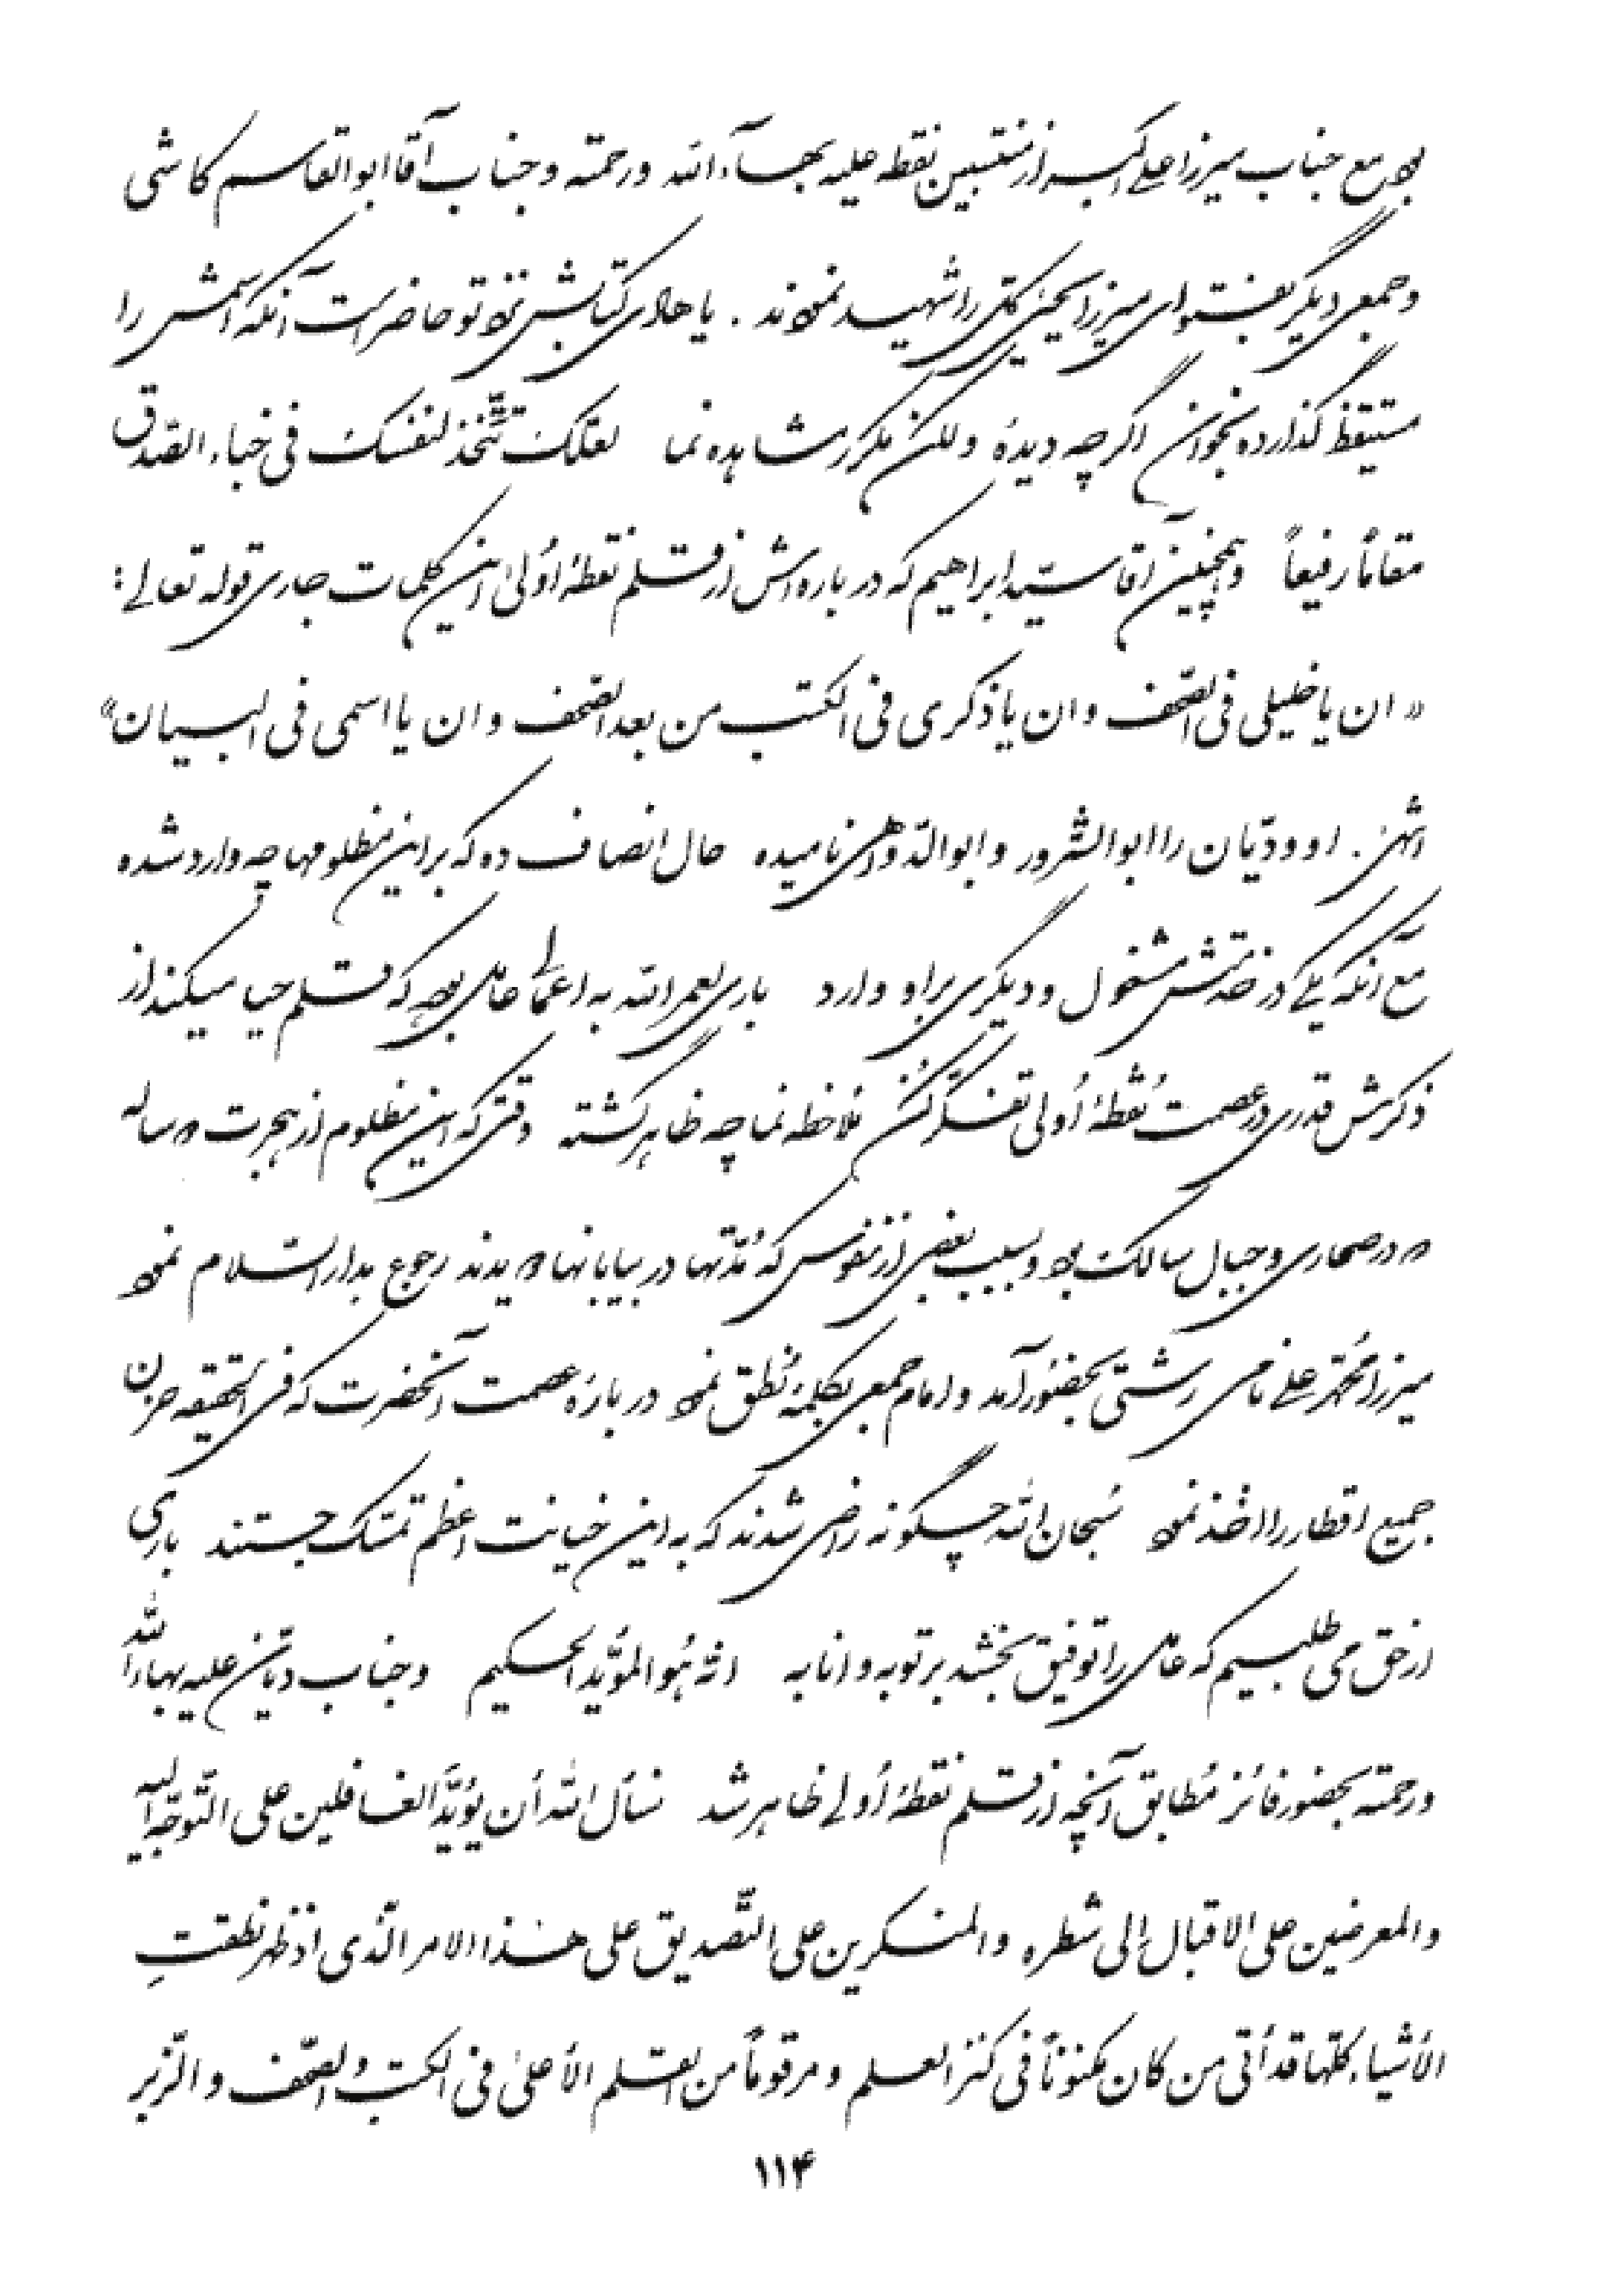 بود مع جناب میرزا علی اکبر از منتسبین نقطه علیه بهآءالله و رحمته و جناب آقا ابوالقاسم کاشی
و جمعی دیگر بفتوای میرزا یحیی کل را شهید نمودند . یا هادی کتابش نزد تو حاضر است آنکه اسمش را
مستیقظ گذارده بخوان اگرچه دیدۀ ولکن مکرر مشاهده نما لعلک تتّخذ لنفسک فی خباء الصّدق
مقاماً رفیعاً و همچنین آقا سیّد ابراهیم که در باره‌اش از قلم نقطۀ اُولیٰ این کلمات جاری قوله تعالی :
« ان یا خلیلی فی الصّحف و ان یا ذکری فی الکتب من بعد الصّحف و ان یا اسمی فی البیان »
انتهیٰ . او و دیّان را ابوالشّرور و ابوالدّواهی نامیده حال انصاف ده که بر این مظلومها چه وارد شده
مع آنکه یکی در خدمتش مشغول و دیگری بر او وارد باری لعمرالله به اعمالی عامل بوده که قلم حیا میکند از
ذکرش قدری در عصمت نُقطۀ اُولی تفکّر کُن ملاحظه نما چه ظاهر گشته وقتی که این مظلوم از هجرت دو ساله
که در صحاری و جبال سالک بود و بسبب بعضی از نفوس که مُدّتها در بیابانها دویدند رجوع بدارالسّلام نمود
میرزا مُحمّد علی نامی رشتی بحضُور آمد و امام جمعی بکلمۀ نُطق نمود در بارۀ عصمت آنحضرت که فی الحقیقه حزن
جمیع اقطار را اخذ نمود سُبحان الله چگونه راضی شدند که به این خیانت اعظم تمسّک جستند باری
از حق می طلبیم که عامل را توفیق بخشد بر توبه و انابه انّه هُو المؤیّد الحکیم و جناب دیّان علیه بهاءالله
و رحمته بحضور فائز مُطابق آنچه از قلم نقطۀ اُولی ظاهر شد نسأل الله أن یُؤیّدَ الغافلین علی التّوجّه الیه
والمعرضین علی الاقبال إلی شطره والمنکرین علی التّصدیق علی هٰذا الامر الّذی اذ ظهر نطقتِ
الأشیاء کلّها قد أتی من کان مکنوناً فی کنز العلم و مرقوماً من القلم الأعلیٰ فی الکتب و الصّحف و الزّبر
۱۱۴